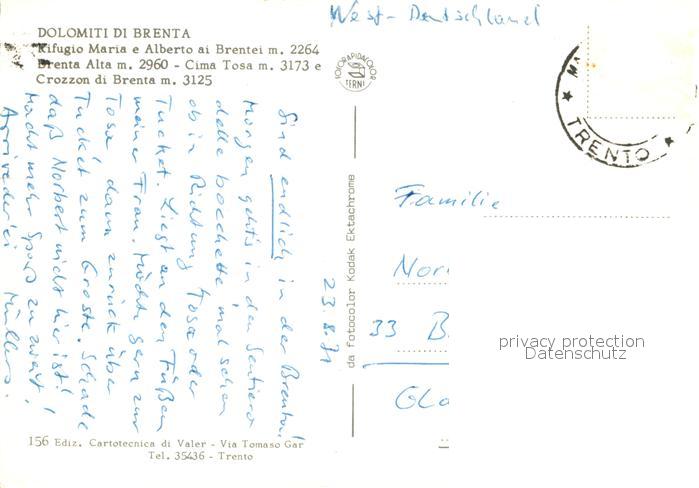 West-Deutschland
DOLOMITI DI BRENTA
Rifugio Maria e Alberto ai Brentei m. 2264
Brenta Alta m. 2960 - Cima Tosa m. 3173 e
Crozzon di Brenta m. 3125
FOTORAPIDACOLOR
TERNI
TRENTO
Sind endlich in der Brenta!
Morgen gehts in den Sentiero
delle bocchette, mal sehen
ob in Richtung Tosa oder
Tucket. Liegt an den Füßen
meiner Frau. Möchte gern zur
Tosa dann zurück über
Tucket zum Groste. Schade
daß Norbert nicht hier ist!
Macht mehr Spass zu zweit!
Arrivederci Müllers.
23.8.71
da fotocolor Kodak Ektachrome
Familie
33 B
privacy protection
Datenschutz
156 Ediz. Cartotecnica di Valer - Via Tomaso Gar
Tel. 35436 - Trento